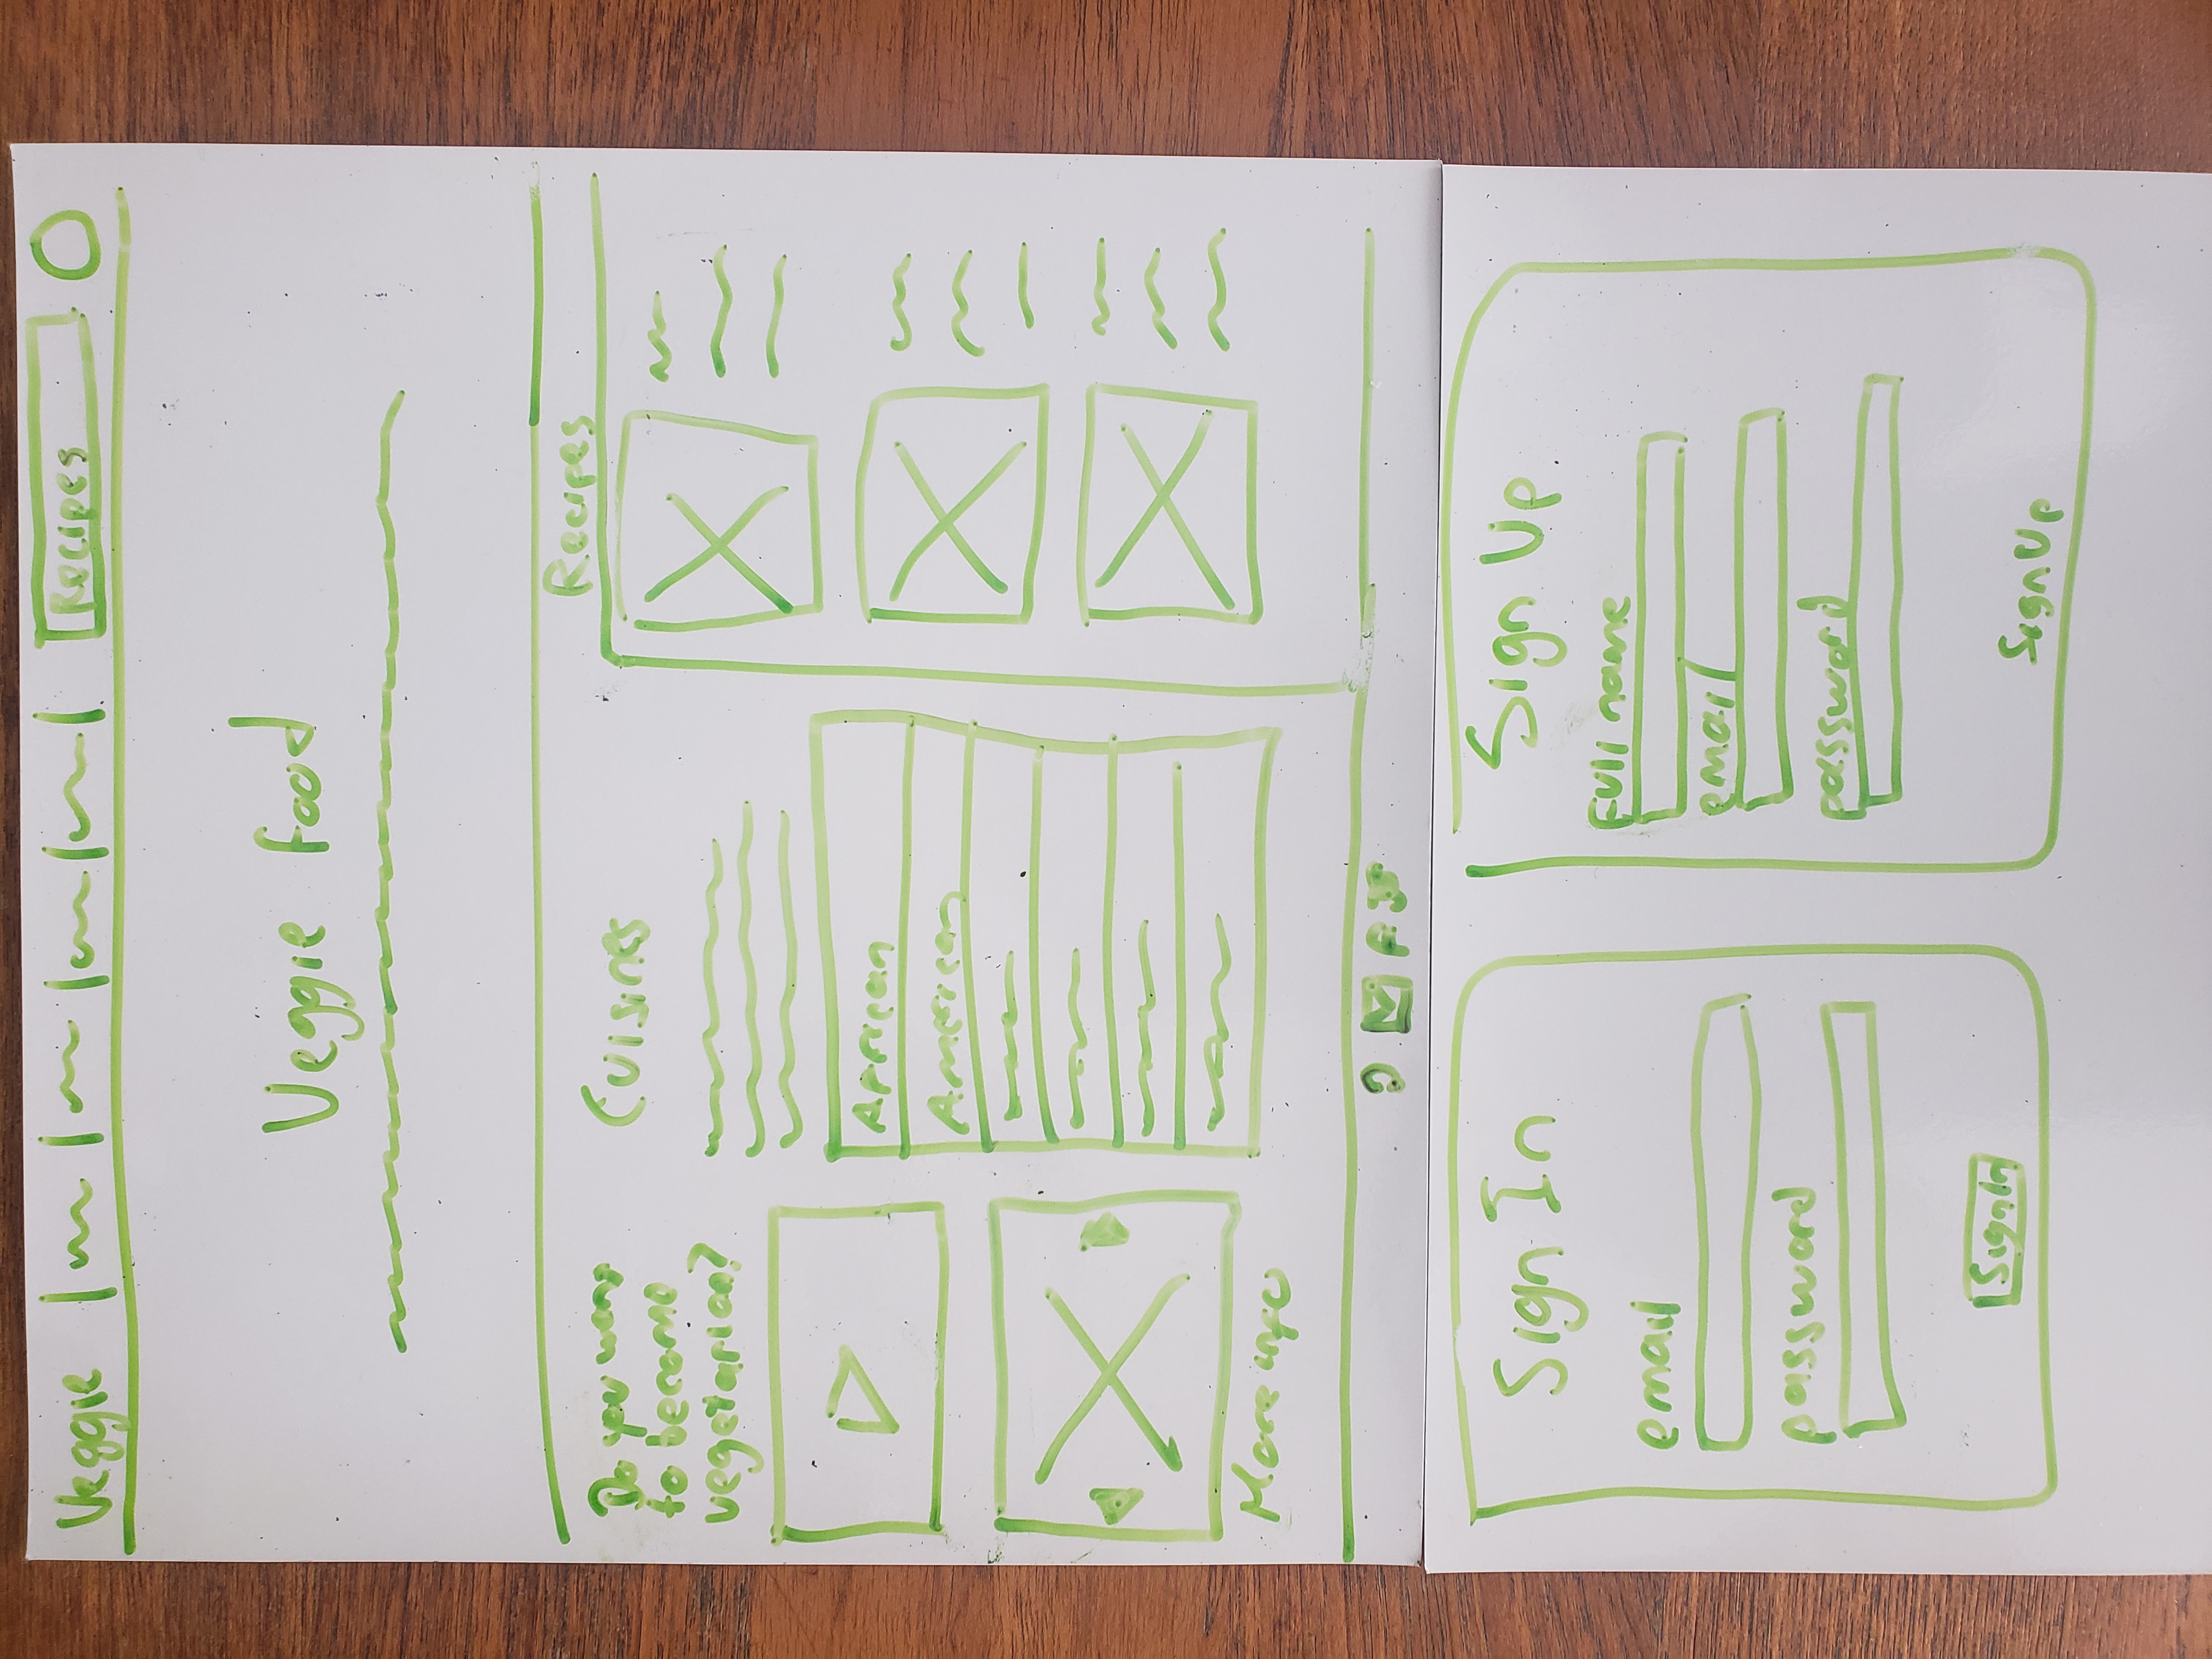 Veggie
Recipes
Veggie food
Do you want
to become
vegetarian?
More info
Cuisines
African
American
Recipes
Sign In
email
password
SignIn
Sign Up
Full name
email
password
SignUp